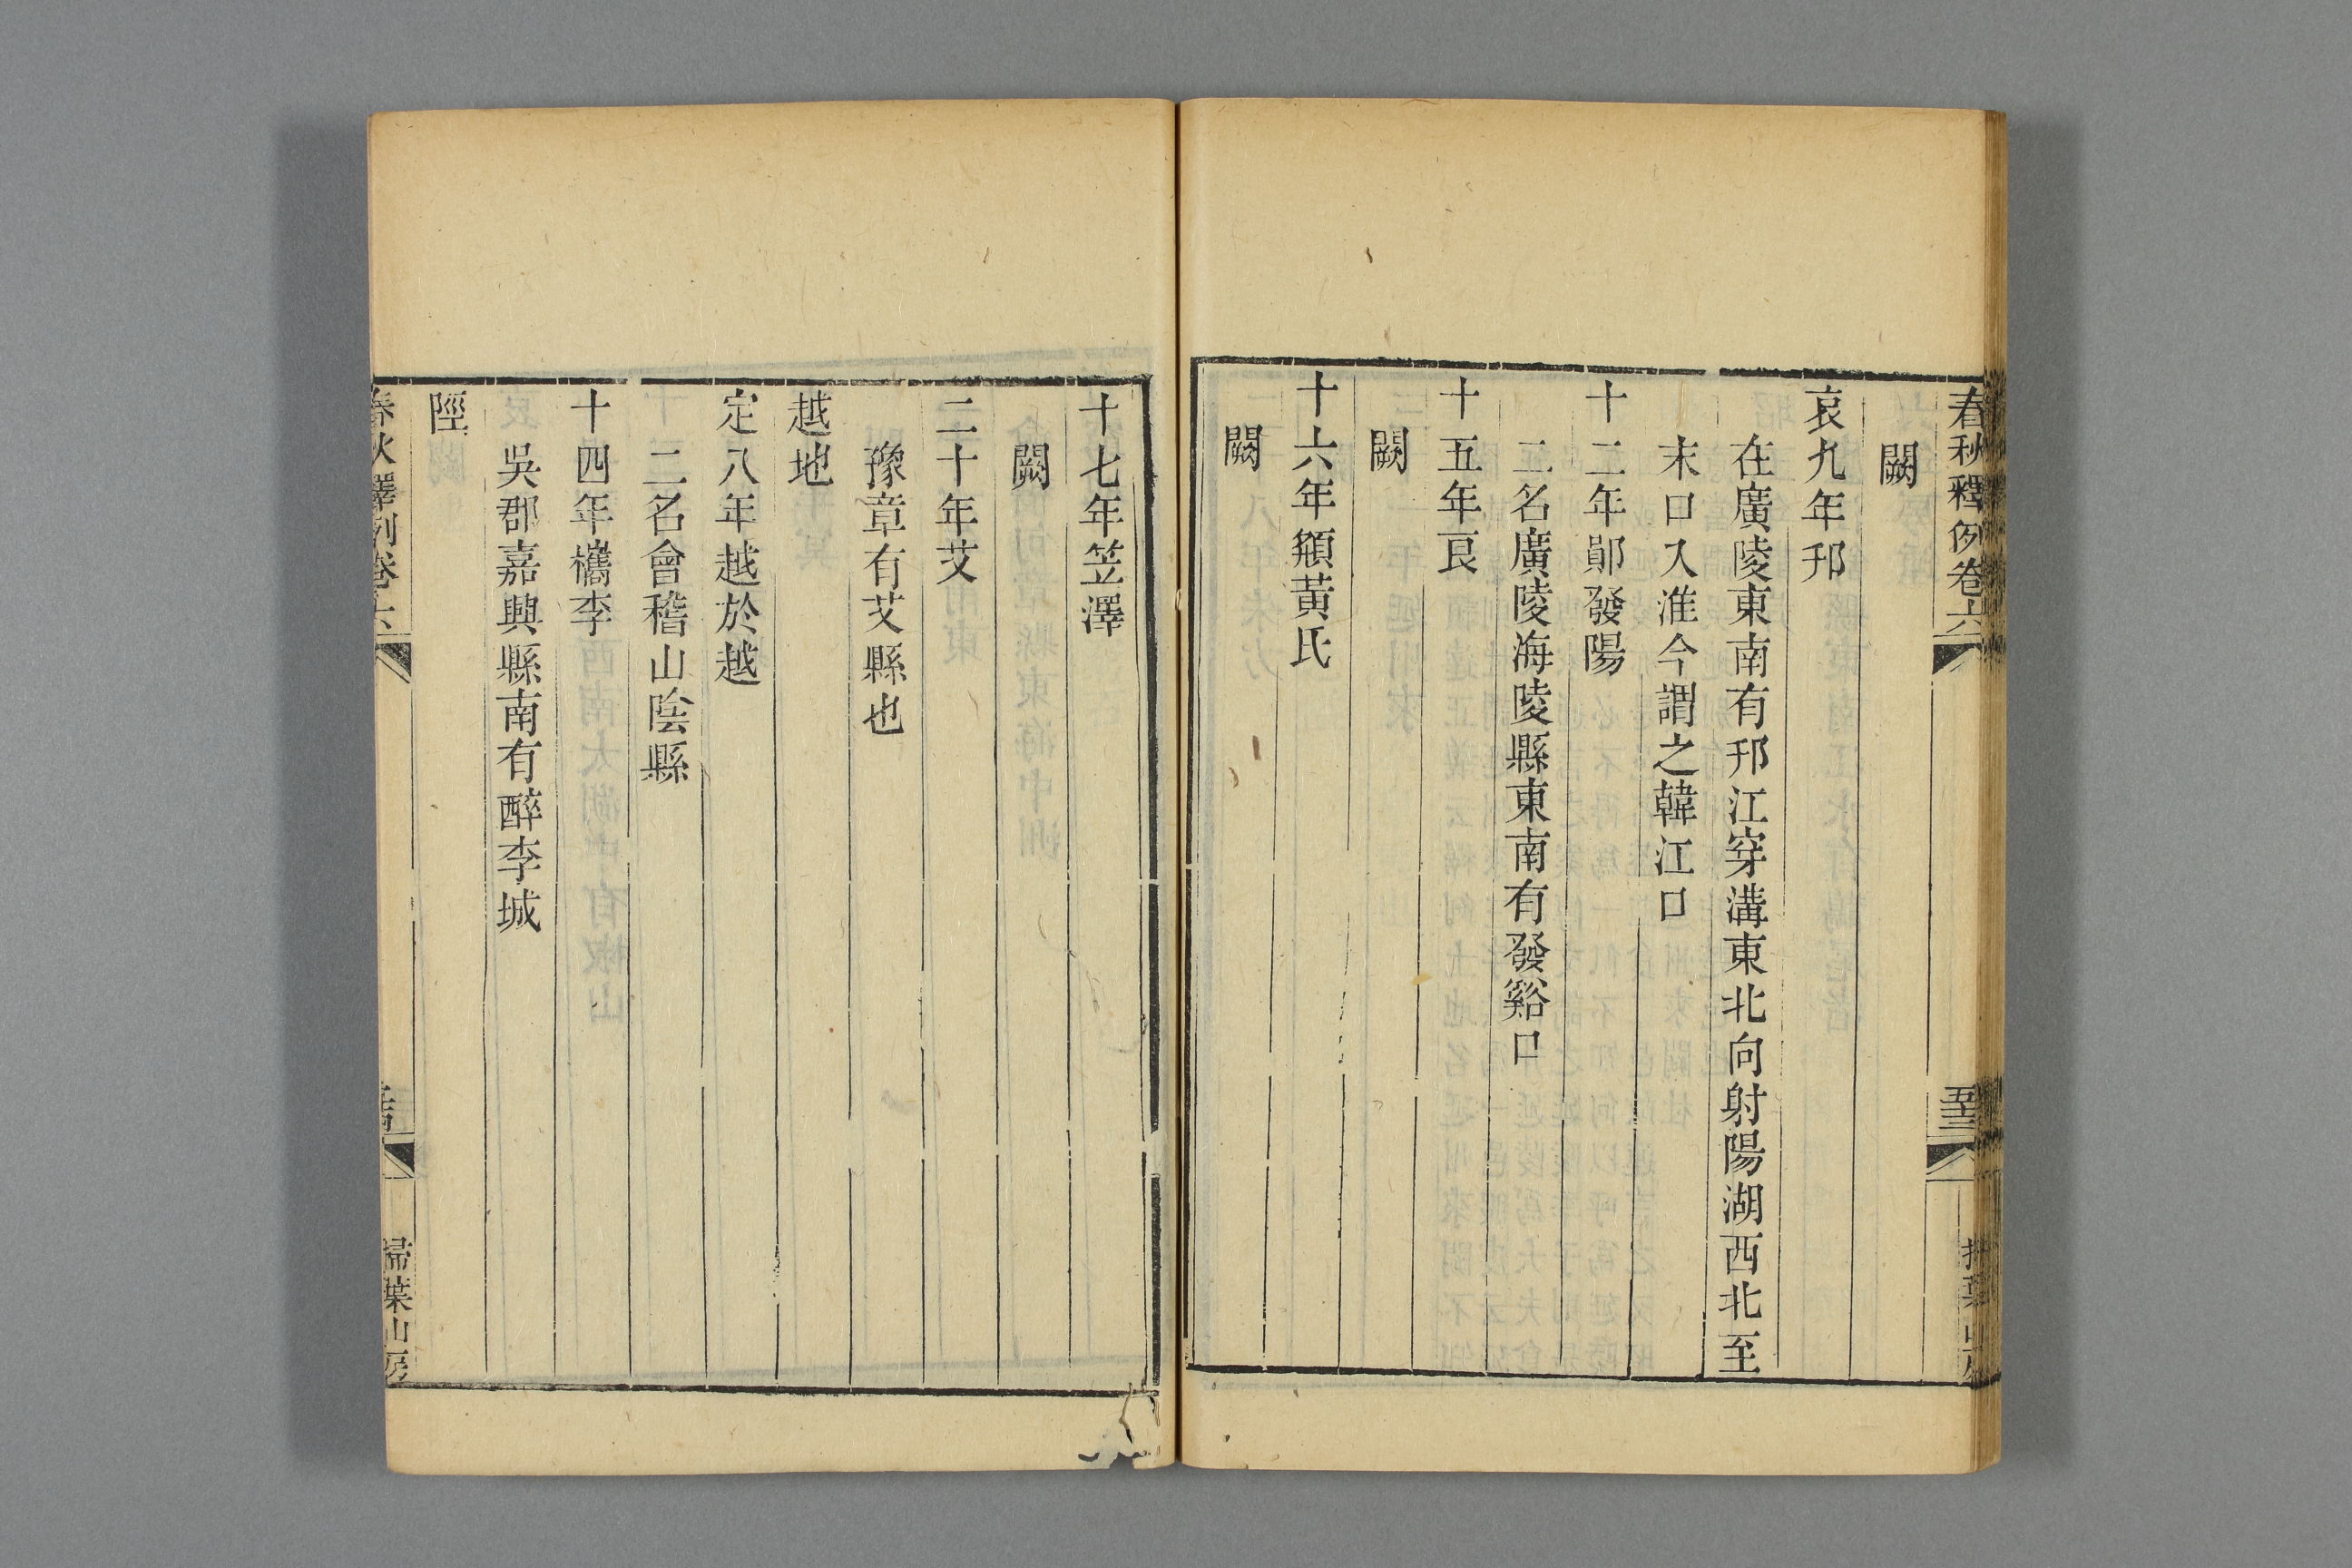 春秋釋例卷六
五三
闕
哀九年邗
在廣陵東南有邗江穿溝東北向射陽湖西北至
末口入淮今謂之韓江口
十二年鄖發陽
二名廣陵海陵縣東南有發谿口
十五年良
闕
十六年頯黃氏
闕
十七年笠澤
闕
二十年艾
豫章有艾縣也
越地
定八年越於越
二名會稽山陰縣
十四年檇李
吳郡嘉興縣南有醉李城
陘
春秋釋例卷六
掃葉山房